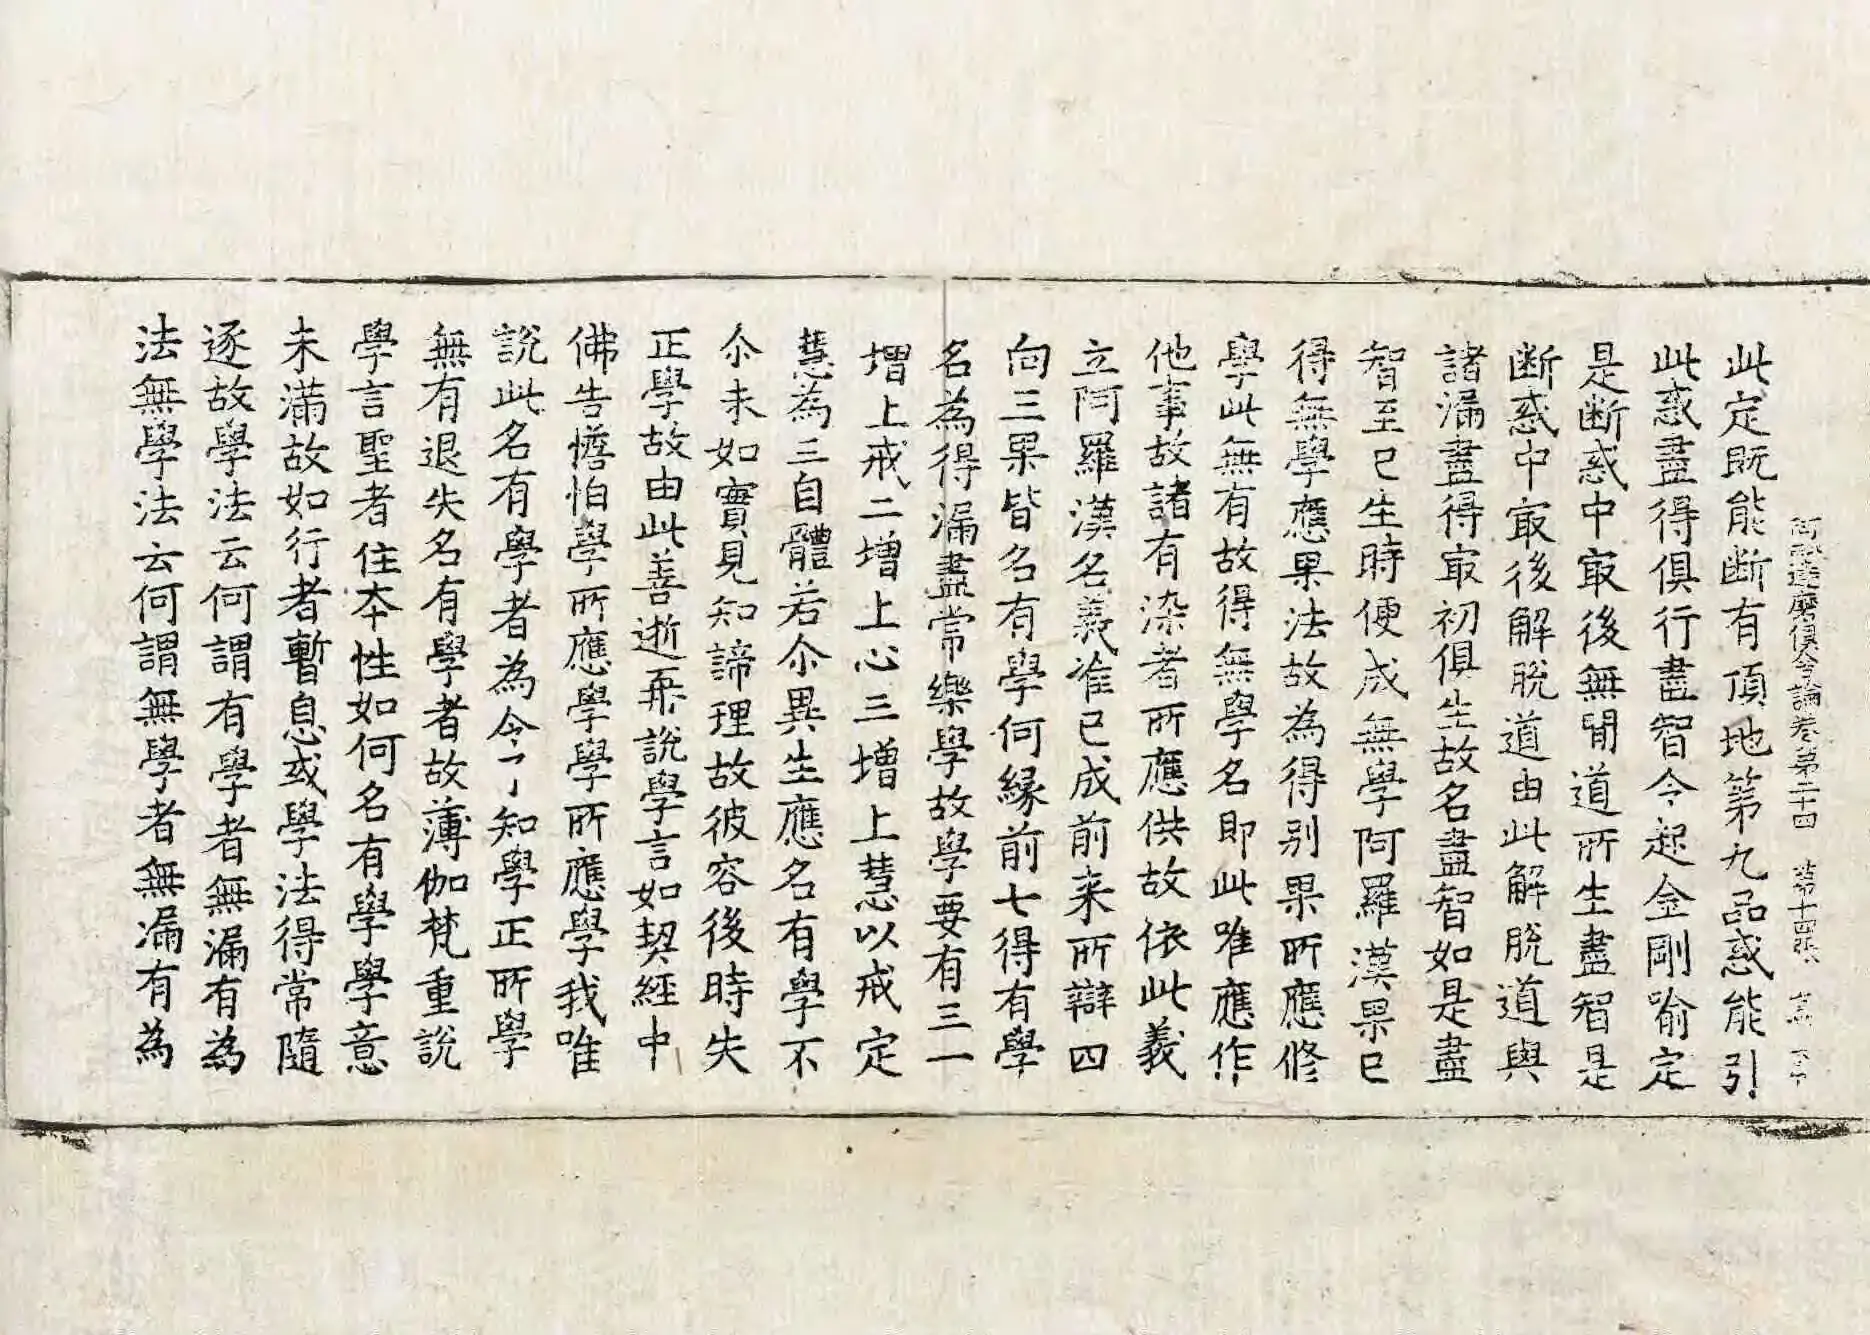 阿毗達磨俱舍論卷第二十四 第十四張
此定既能断有頂地第九品惑能引
此惑盡得俱行盡智令起金剛喻定
是断惑中㝡後無間道所生盡智是
断惑中㝡後解脫道由此解脫道與
諸漏盡得㝡初俱生故名盡智如是盡
智至已生時便成無學阿羅漢果已
得無學應果法故為得别果所應修
學此無有故得無學名即此唯應作
他事故諸有染者所應供故依此義
立阿羅漢名義准已成前来所辯四
向三果皆名有學何緣前七得有學
名為得漏盡常樂學故學要有三一
增上戒二增上心三增上慧以戒定
慧為三自體若尒異生應名有學不
尒未如實見知諦理故彼容後時失
正學故由此善逝再說學言如契經中
佛告憺怕學所應學學所應學我唯
說此名有學者為令了知學正所學
無有退失名有學者故薄伽梵重說
學言聖者住本性如何名有學學意
未滿故如行者暫息或學法得常隨
逐故學法云何謂有學者無漏有為
法無學法云何謂無學者無漏有為